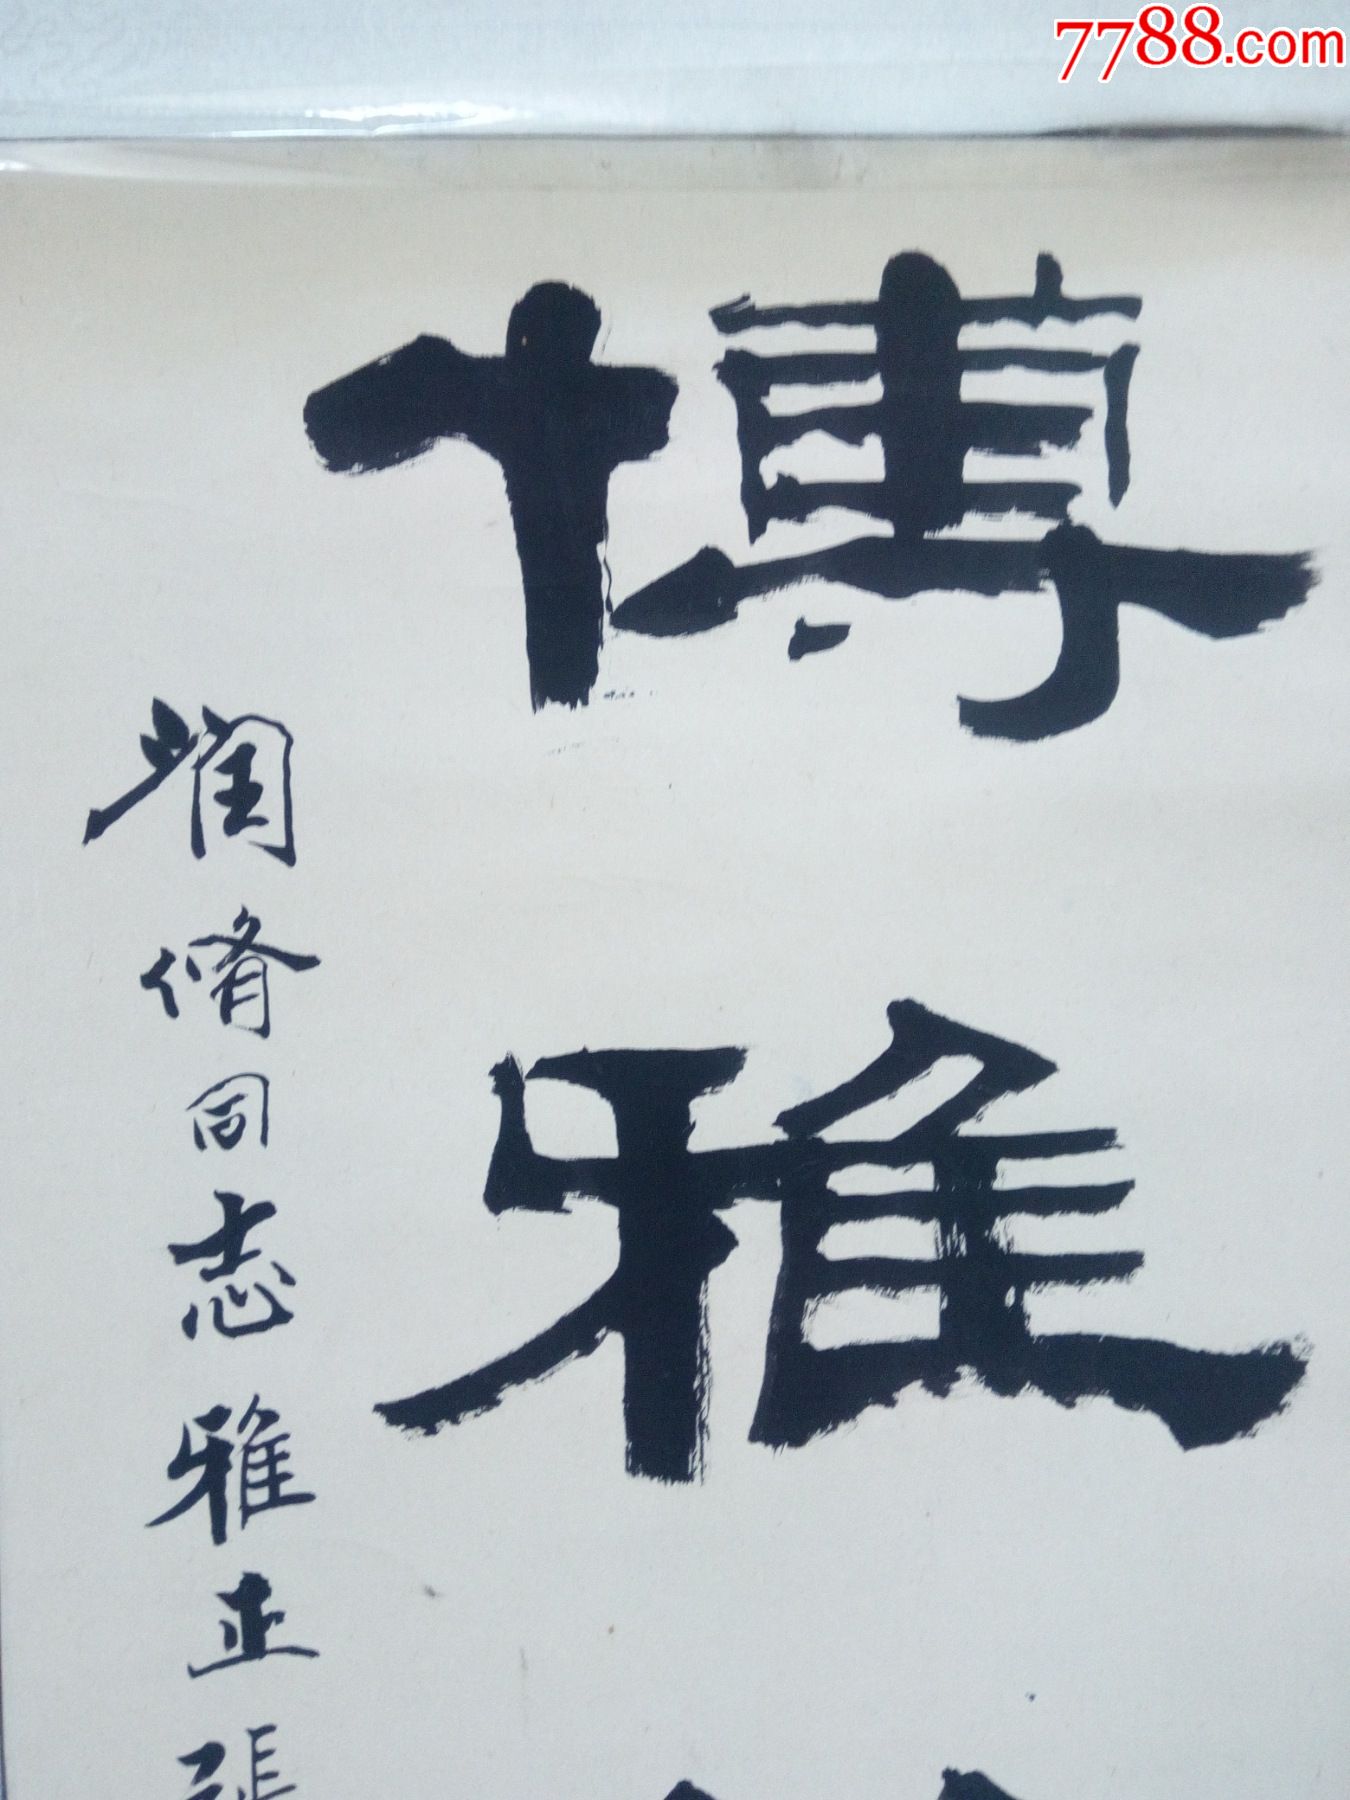 7788.com
博雅
润脩同志雅正張